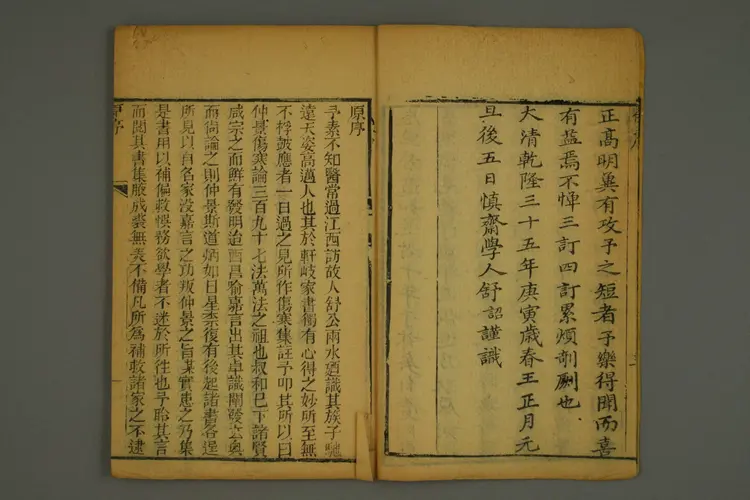 正高明冀有攻予之短者予樂得聞而喜
有益焉不憚三訂四訂累煩剞劂也
大清乾隆三十五年庚寅歲春王正月元
旦後五日慎齋學人舒詔謹識
原序
予素不知醫常過江西訪故人舒公雨水廼識其族子馳
遠天姿高邁人也其於軒岐家書獨有心得之妙所至無
不桴皷應者一日過之見所作傷寒集註予叩其所以曰
仲景傷寒論三百九十七法萬法之祖也叔和已下諸賢
咸宗之而鮮有發明迨西昌喻嘉言出其卓識闡發玄奥
而尚論之則仲景斯道炳如日星柰復有後起諸書畧逞
所見以自名家没嘉言之功叛仲景之旨某實恵之乃集
是書用以補偏救悞務欲學者不迷於所往也予聆其言
而閱其書集腋成裘無美不備凡所為補救諸家之不逮
原序